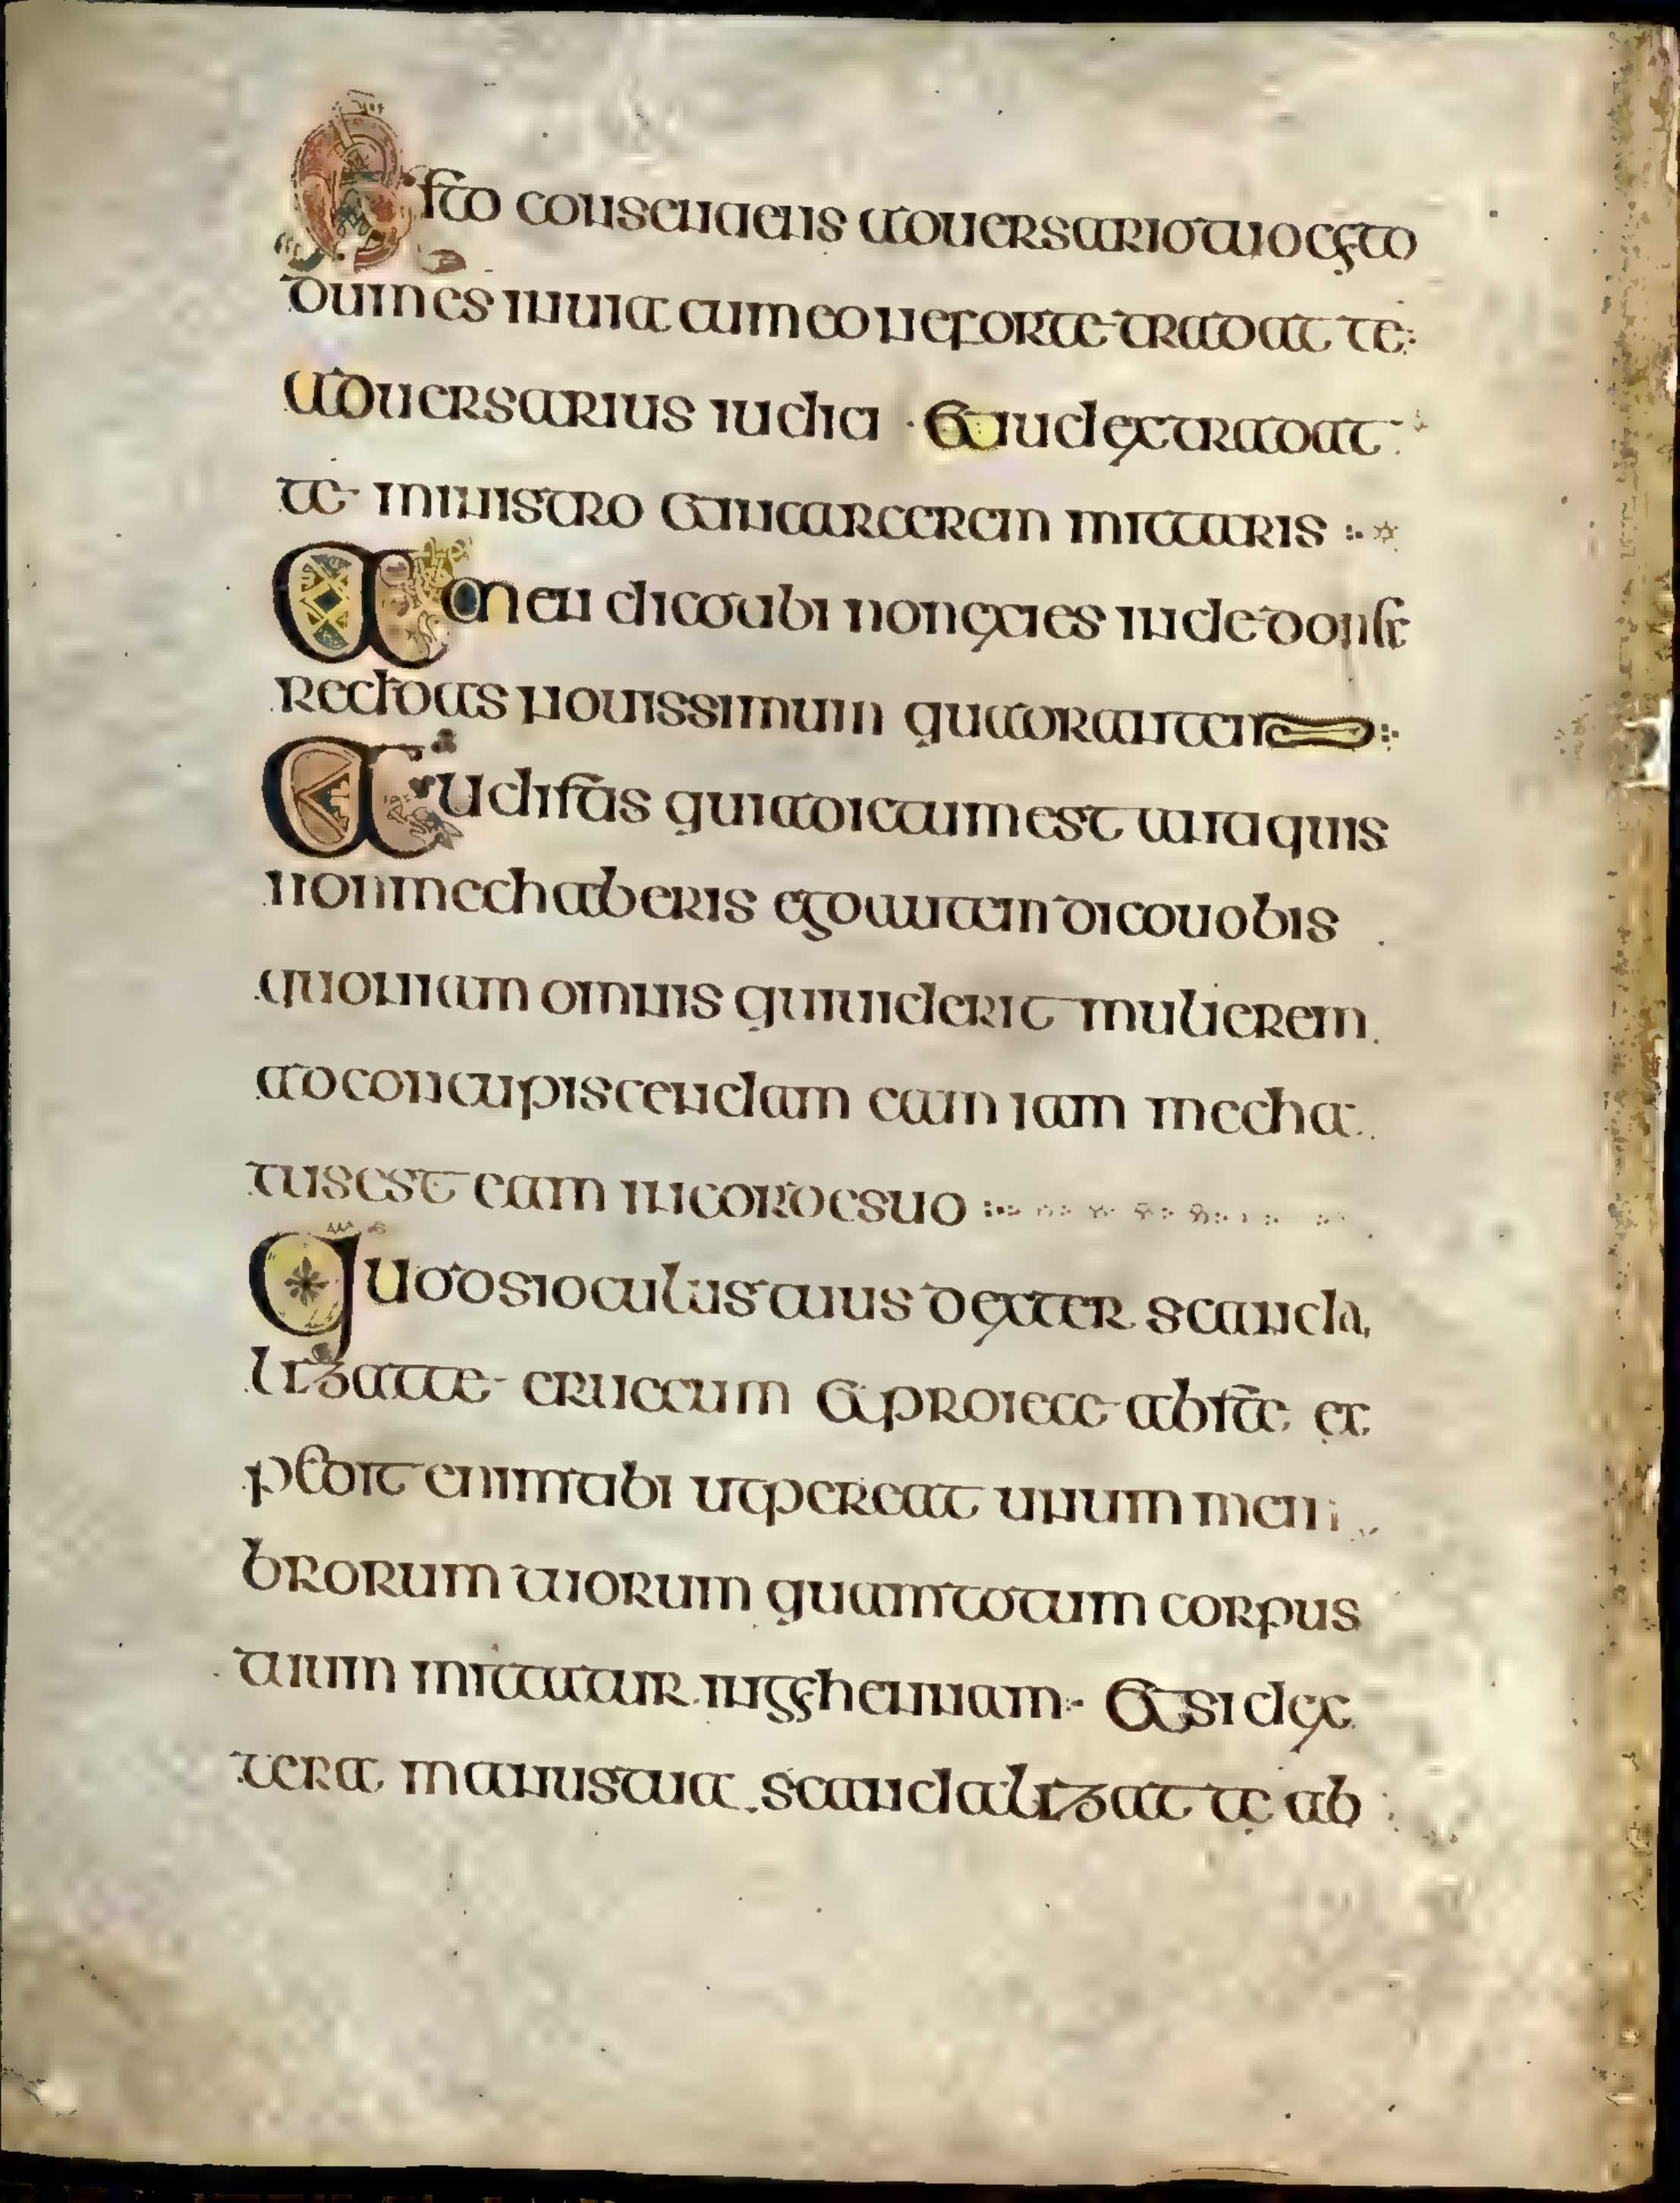 Esto consentiens aduersario tuo cito
dum es in uia cum eo ne forte tradat te
aduersarius iudici et iudex tradat
te ministro et in carcerem mittaris
Amen dico tibi non exies inde donec
reddas nouissimum quadrantem
Audistis quia dictum est antiquis
non mechaberis ego autem dico uobis
quoniam omnis qui uiderit mulierem
ad concupiscendam eam iam mecha
tus est eam in corde suo
Quod si oculus tuus dexter scanda
lizat te erue eum et proiece abs te ex
pedit enim tibi ut pereat unum mem
brorum tuorum quam totum corpus
tuum mittatur in gehennam et si dex
tera manus tua scandalizat te ab